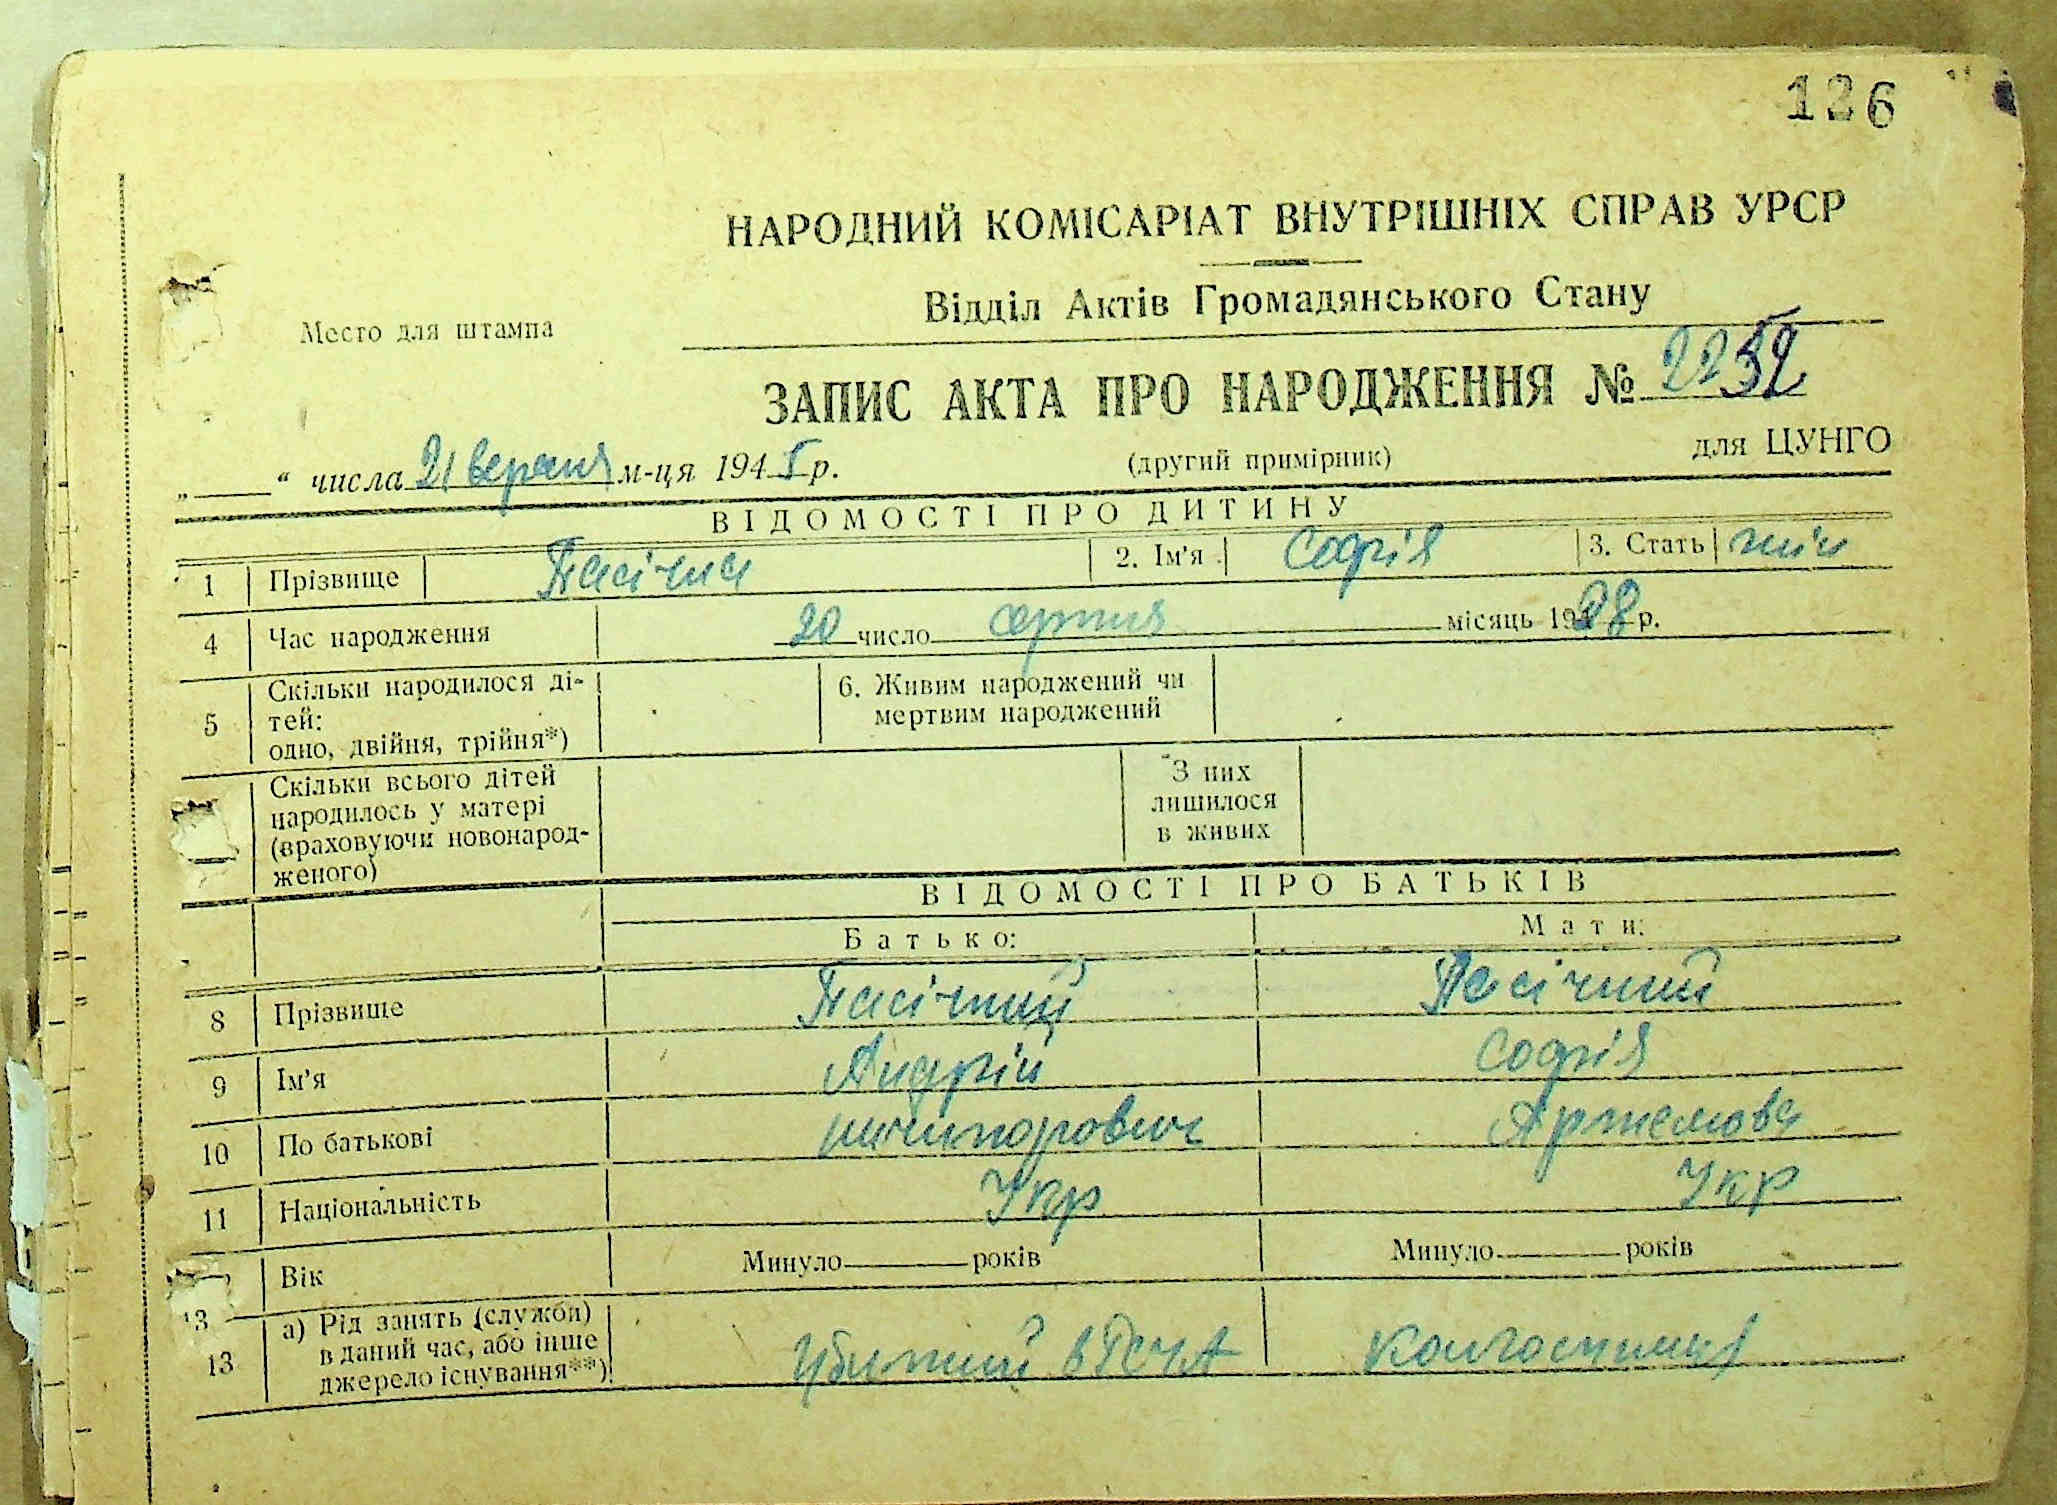 126
НАРОДНИЙ КОМІСАРІАТ ВНУТРІШНІХ СПРАВ УРСР
Відділ Актів Громадянського Стану
Место для штампа
ЗАПИС АКТА ПРО НАРОДЖЕННЯ № 2252
„ “ числа 21 вересня м-ця 1945 р. (другий примірник) для ЦУНГО
ВІДОМОСТІ ПРО ДИТИНУ
1 Прізвище Пасічна 2. Ім'я Софія 3. Стать жін
4 Час народження 20 число серпня місяць 1928 р.
5 Скільки народилося ді-
тей:
одно, двійня, трійня*)
6. Живим народжений чи
мертвим народжений
Скільки всього дітей
народилось у матері
(враховуючи новонарод-
женого)
З них
лишилося
в живих
ВІДОМОСТІ ПРО БАТЬКІВ
Батько: Мати:
8 Прізвище Пасічний Пасічний
9 Ім'я Андрій Софія
10 По батькові ничипорович Артемова
11 Національність Укр Укр
Вік Минуло років Минуло років
13
13 а) Рід занять (служби)
в даний час, або інше
джерело існування**)
Убитий в РСЧА колгоспниця